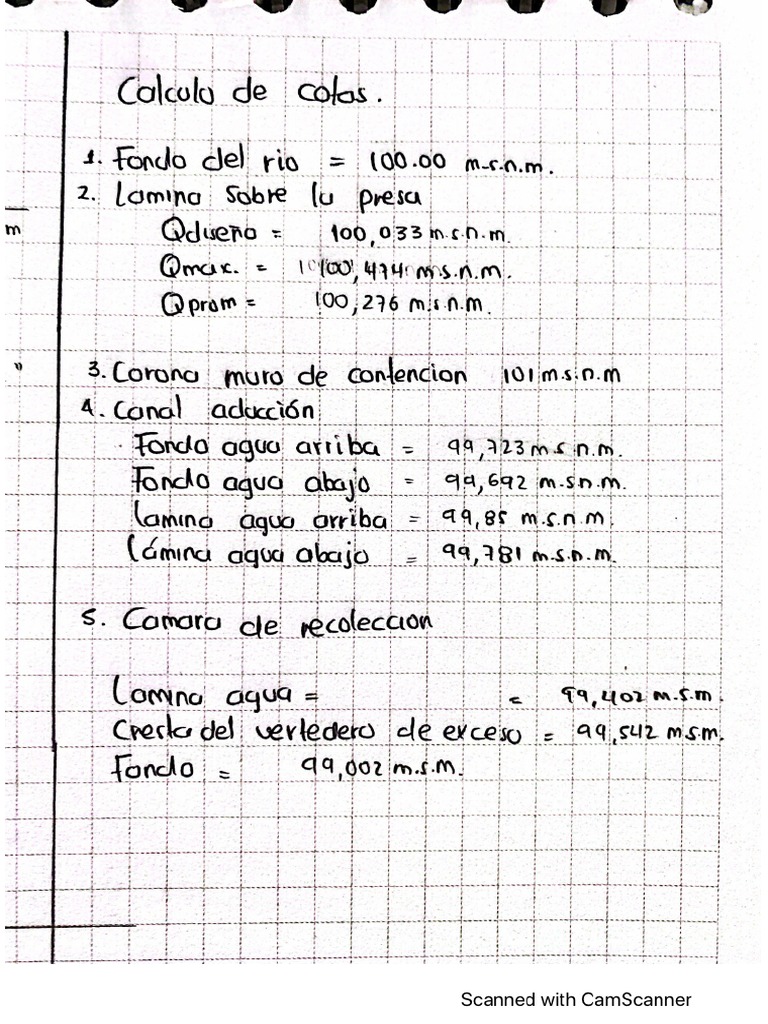 Calculo de cotas.
1. Fondo del rio = 100.00 m.s.n.m.
2. Lamina sobre la presa
m
Qdiseño = 100,033 m.s.n.m.
Qmax. = 100,474 m.s.n.m.
Qprom = 100,276 m.s.n.m.
3. Corona muro de contencion 101 m.s.n.m
4. Canal aducción
Fondo agua arriba = 99,723 m.s.n.m.
Fondo agua abajo = 99,692 m.s.n.m.
Lamina agua arriba = 99,85 m.s.n.m
Lámina agua abajo = 99,781 m.s.n.m.
5. Camara de recoleccion
Lamina agua = = 99,402 m.s.m.
Cresta del vertedero de exceso = 99,542 m.s.m.
Fondo = 99,002 m.s.m.
Scanned with CamScanner